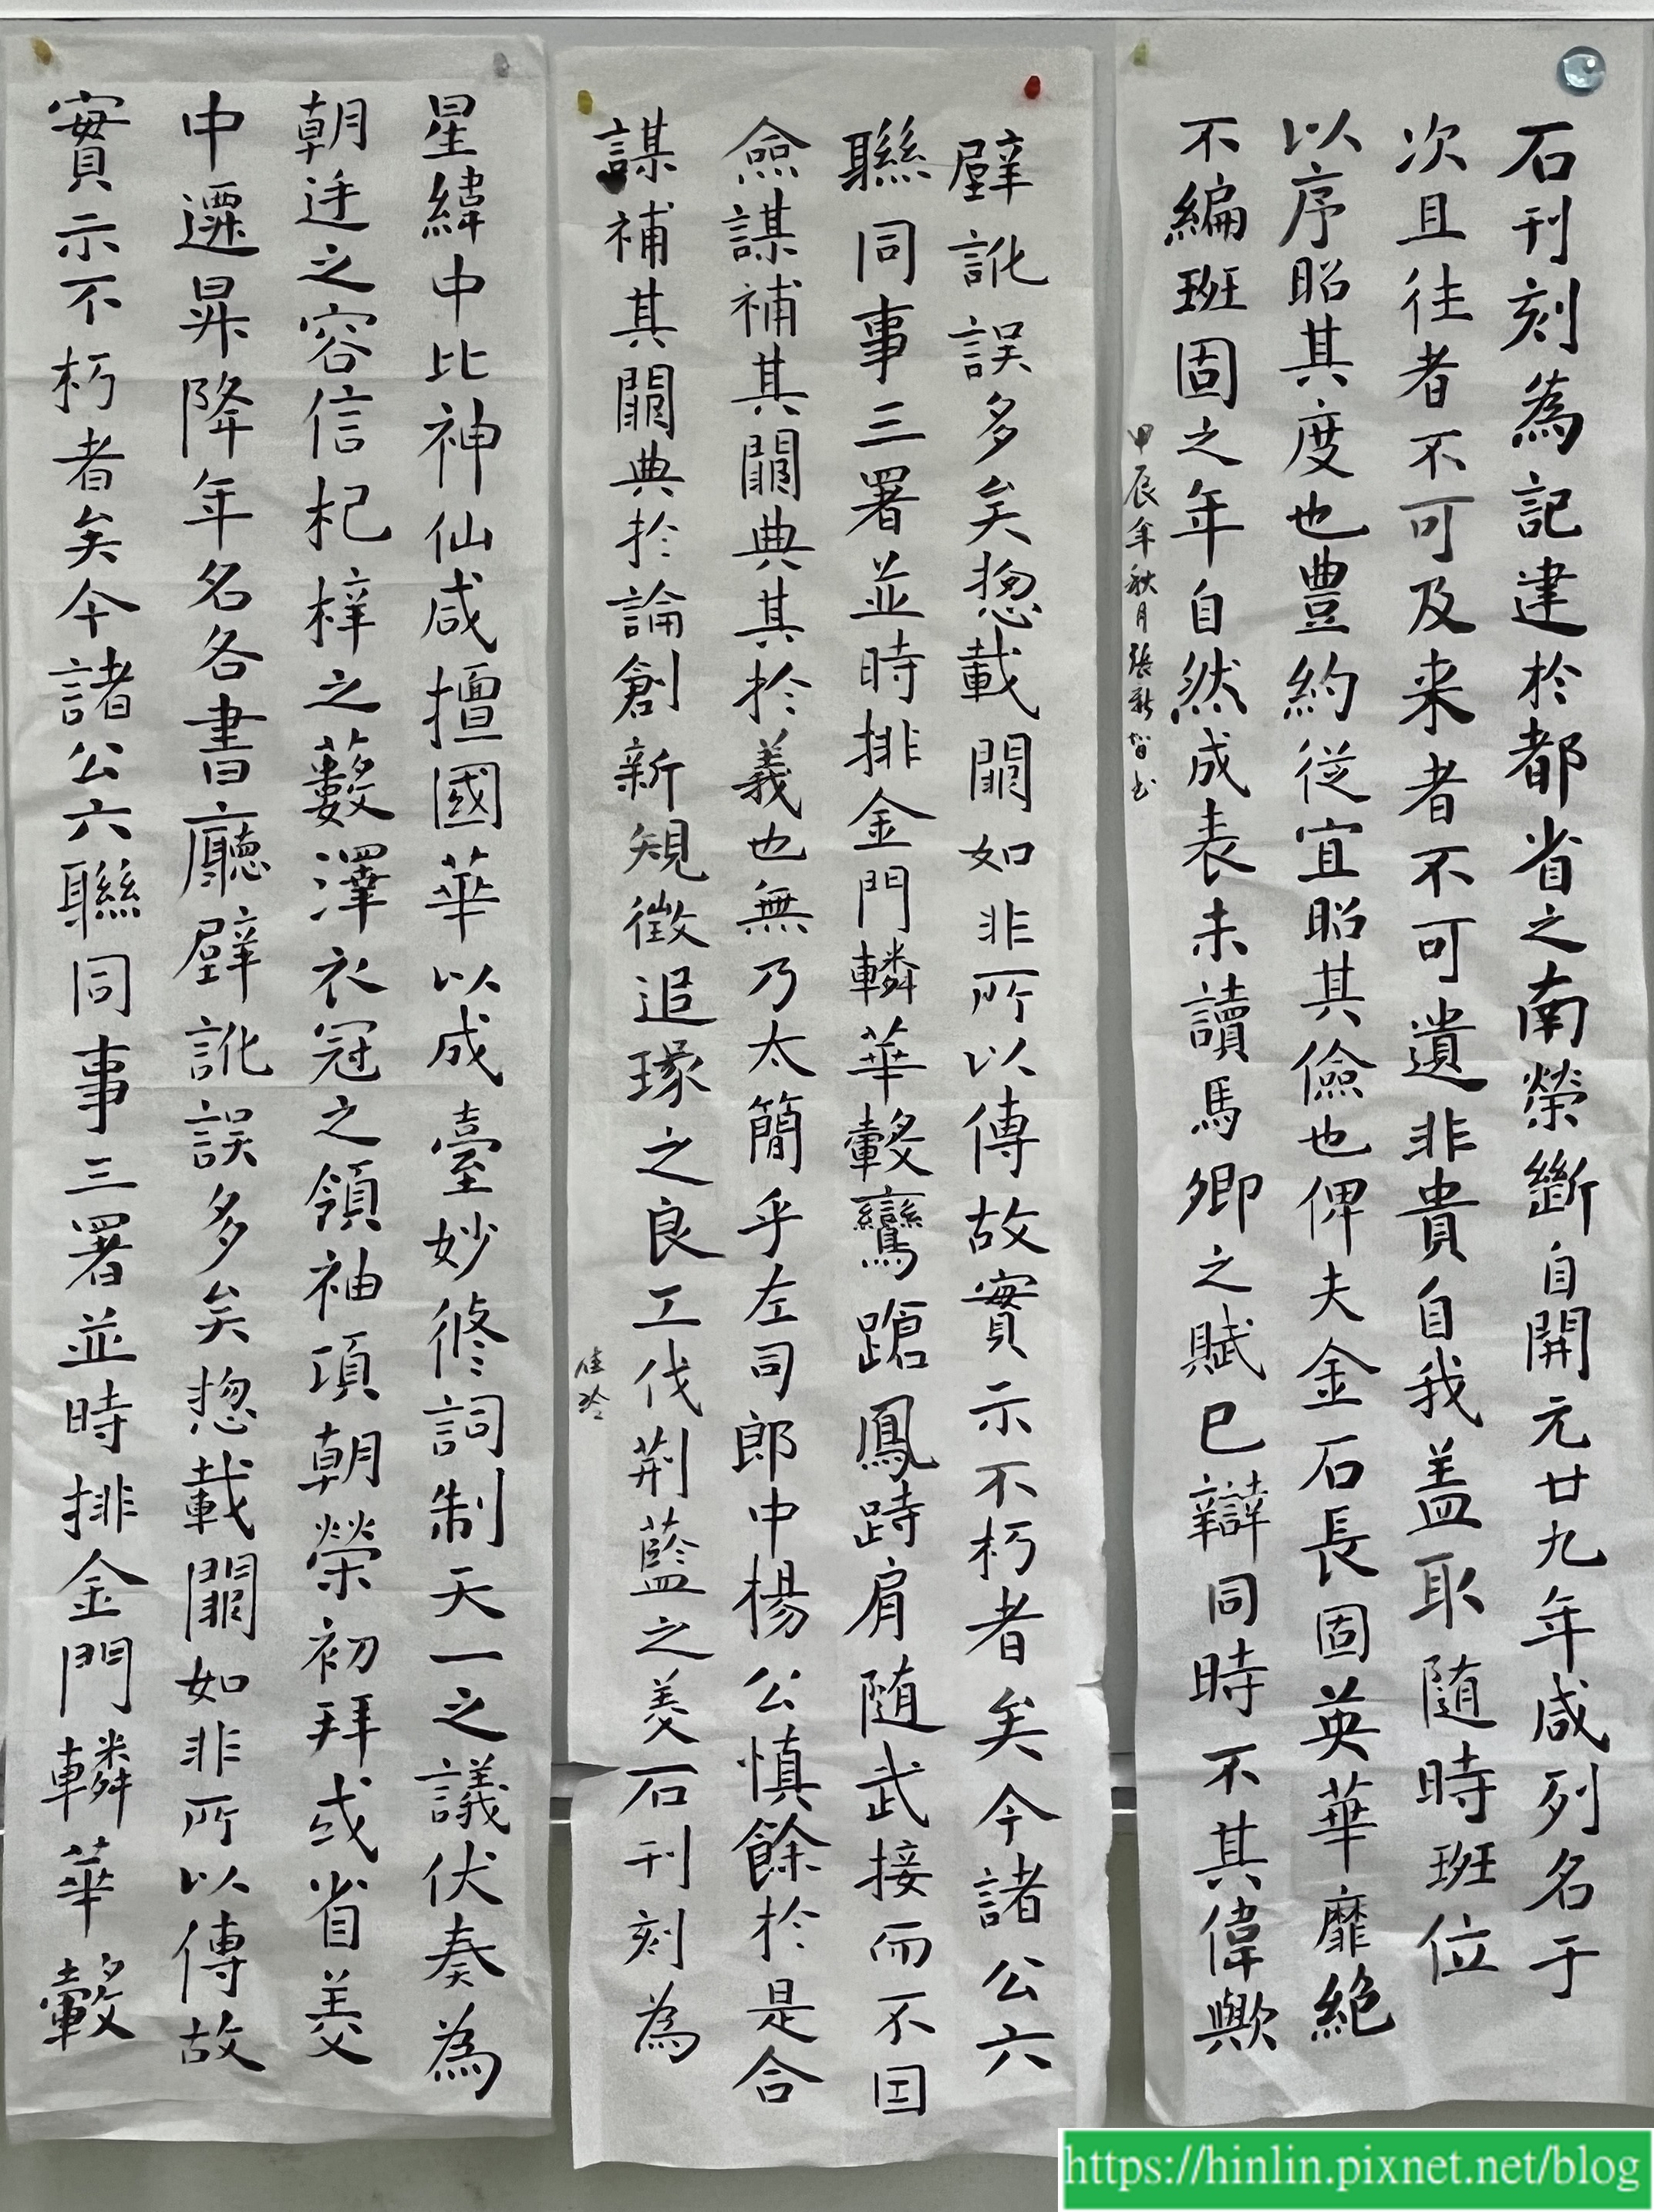 石刊刻為記建於都省之南榮斷自開元廿九年咸列名于
次且往者不可及来者不可遺非貴自我盖取随時班位
以序昭其度也豊約従宜昭其儉也俾夫金石長固英華靡絶
不編班固之年自然成表未讀馬卿之賦已辯同時不其偉歟
甲辰年秋月張新智书
壁訛誤多矣揔載闕如非所以傳故實示不朽者矣今諸公六
聯同事三署並時排金門轔華轂鸞蹌鳳跱肩随武接而不囙
僉謀補其闕典其於義也無乃太簡乎左司郎中楊公慎餘於是合
謀補其闕典於論創新規徵追琢之良工伐荆藍之美石刊刻為
佳玲
星緯中比神仙咸擅國華以成臺妙修詞制天一之議伏奏為
朝廷之容信杞梓之藪澤衣冠之領袖項朝榮初拜或省美
中遷昇降年名各書廳壁訛誤多矣揔載闕如非所以傳故
實示不朽者矣今諸公六聯同事三署並時排金門轔華轂
https://hinlin.pixnet.net/blog